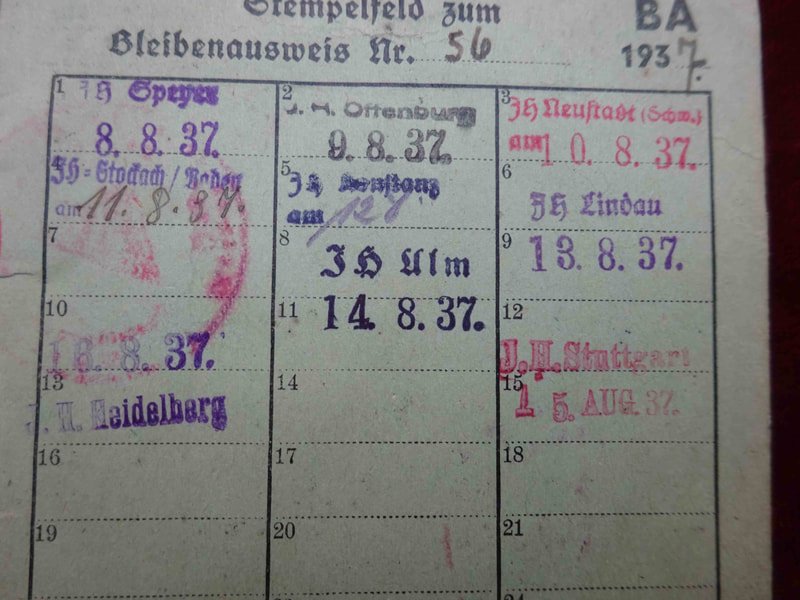 Stempelfeld zum
Bleibenausweis Nr. 56
BA
1937.
1
JH Speyer
8. 8. 37.
2
J. H. Offenburg
9. 8. 37.
3
JH Neustadt (Schw.)
am 10. 8. 37.
JH-Stockach / Baden
am 11. 8. 37.
5
JH Konstanz
am 12 8
6
JH Lindau
13. 8. 37.
7
8
JH Ulm
14. 8. 37.
9
10
11
12
J. H. Stuttgart
15. AUG. 37.
8. 37.
13
J. H. Heidelberg
14
15
16
17
18
19
20
21